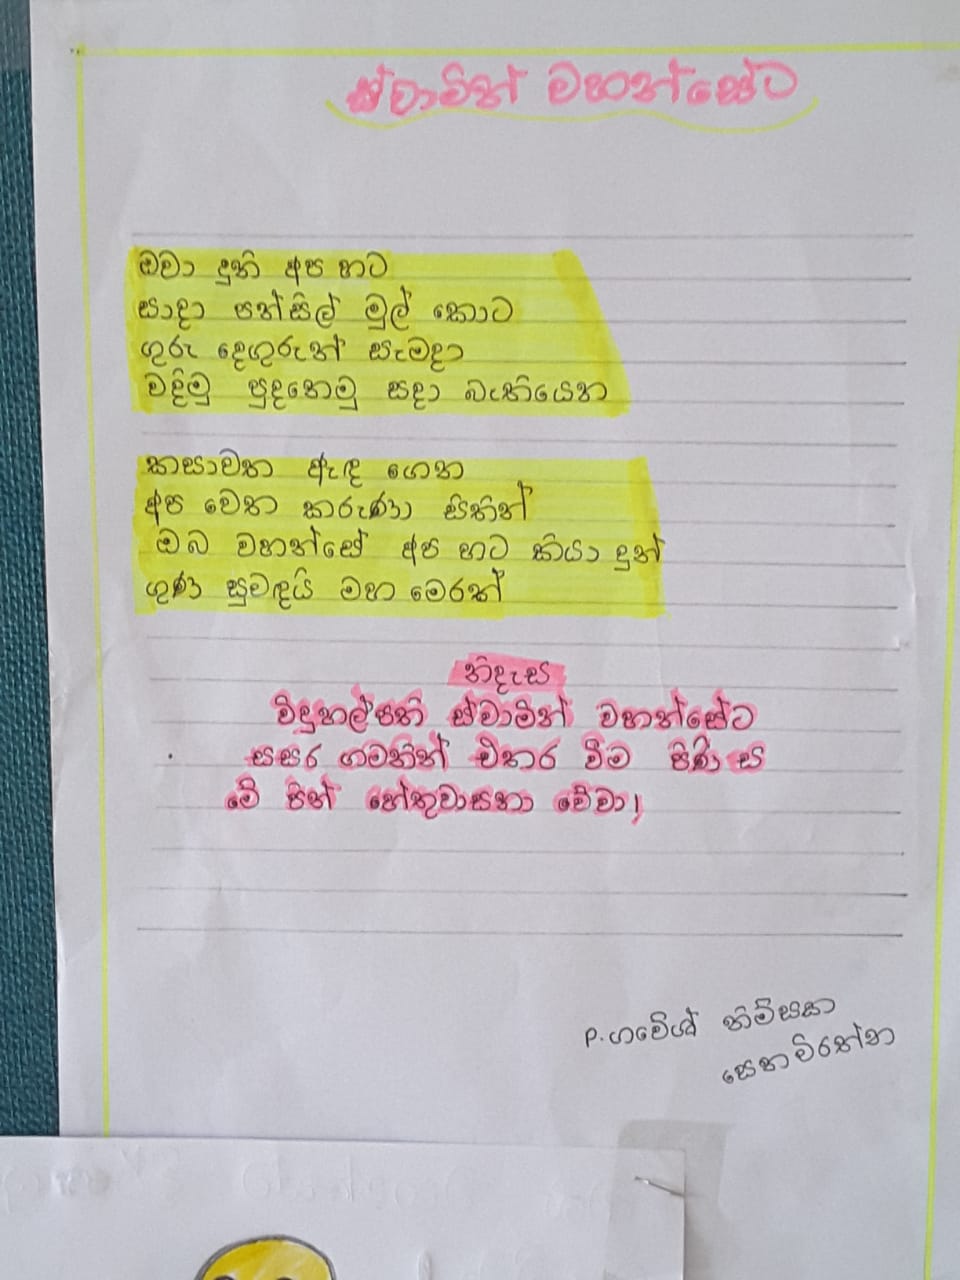 ස්වාමින් වහන්සේට
ඔවා දුනි අප හට
සාදා පන්සිල් මුල් කොට
ගුරු දෙගුරුන් සැමදා
වදිමු පුදනෙමු සදා බැතියෙන
කසාවත ඇඳ ගෙන
අප වෙත කරුණා සිතින්
ඔබ වහන්සේ අප හට කියා දුන්
ගුණ සුවඳයි මහ මෙරක්
නිදැස
විදුහල්පති ස්වාමින් වහන්සේට
සසර ගමනින් එතර වීම පිණිස
මේ පින් හේතුවාසනා වේවා!
P.ගවේශ් නිම්සකා
සෙනවිරත්න